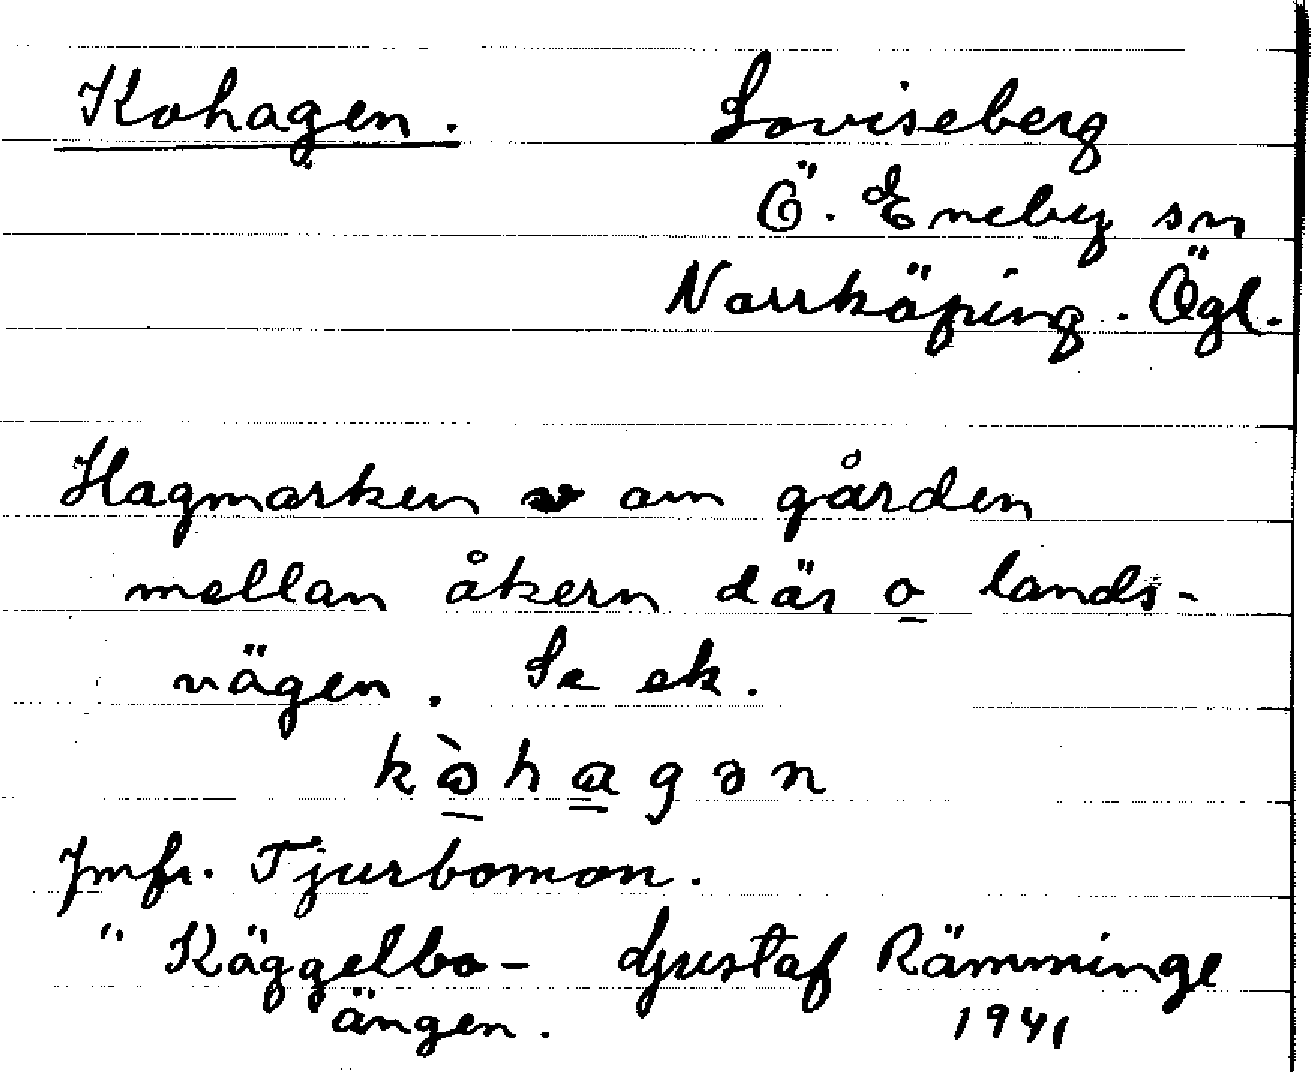 Kohagen. Loviseberg
Ö. Eneby sn
Norrköping. Ögl.
Hagmarken v om gården
mellan åkern där o lands-
vägen. Se ek.
kòhagən
Jmfr. Tjurbomon.
" Käggelbo- Gustaf Rämminge
ängen. 1941